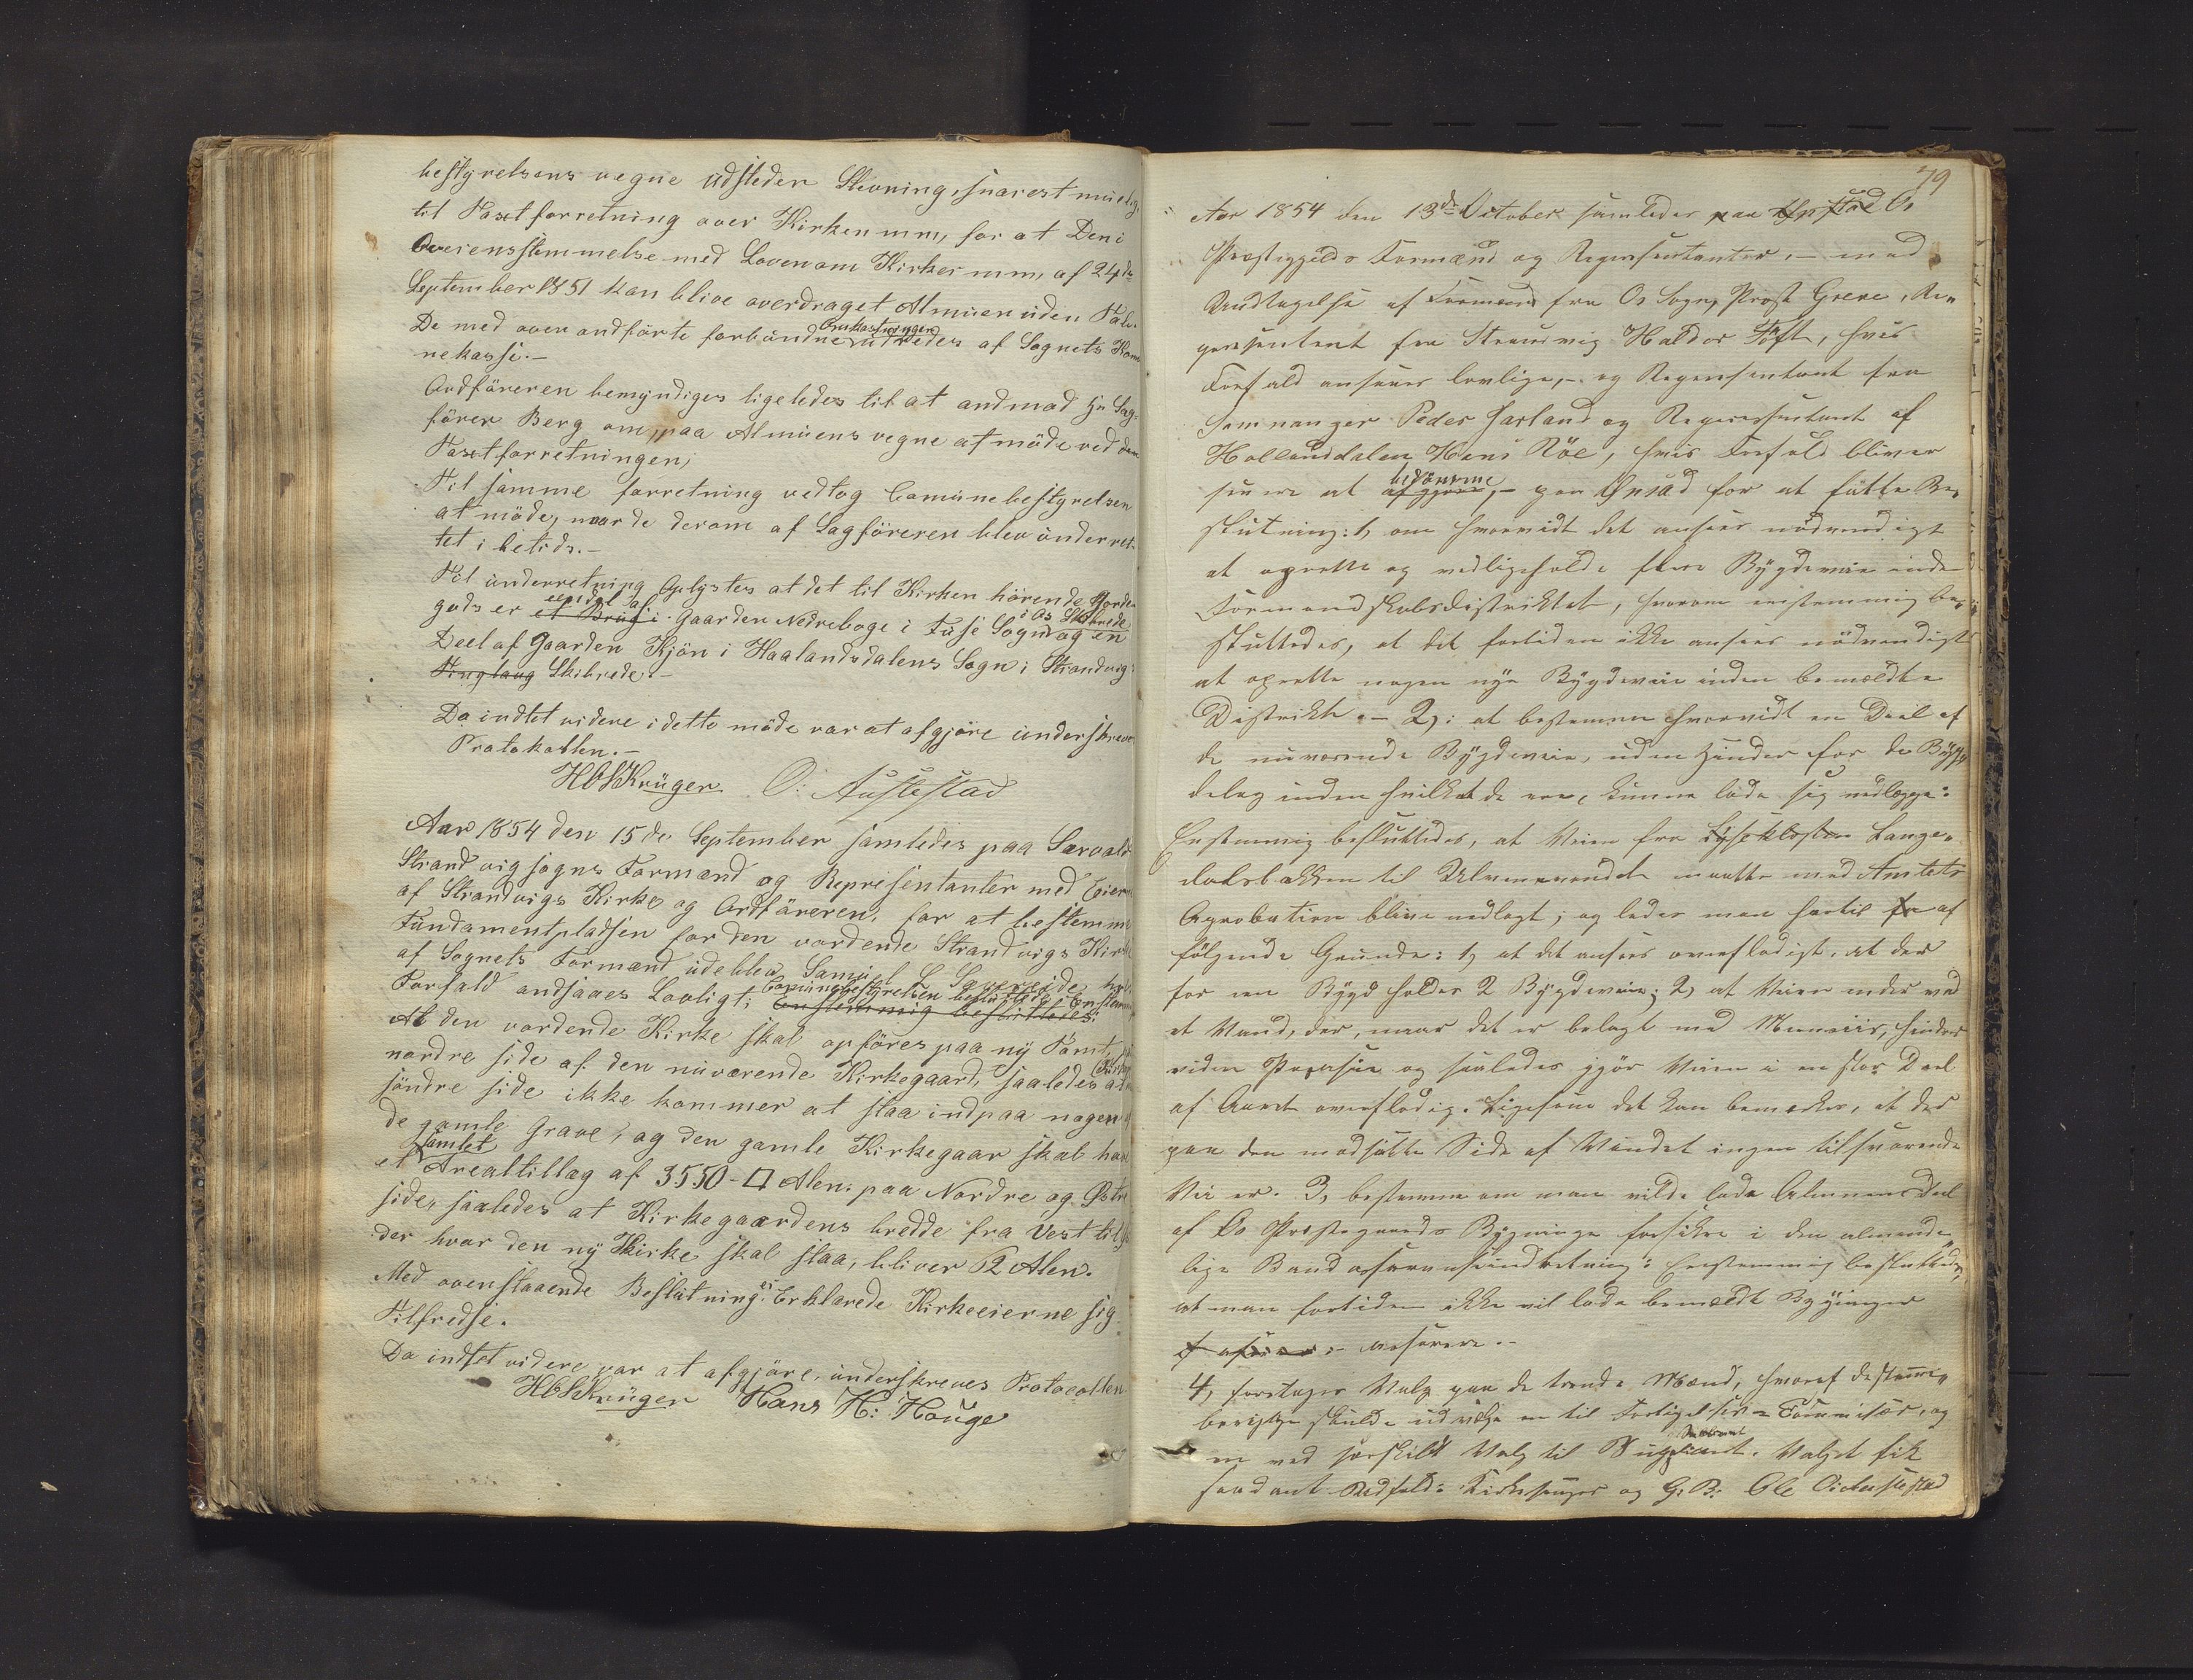 bestyrelsens vegne udsteder Stevning, snarest muelig,
til Taxtforretning over Kirken mm, for at Den i
Overensstemmelse med Loven om Kirker mm, af 24de
September 1851 kan blive overdraget Almuen uden
De med oven andførte forbundne Omkostninger udredes af Sognets Kom
nekasse.-
Ordføreren bemyndiges ligeledes til at andmode Hr Sag=
fører Berg om, paa Almuens vegne at møde ved den
Taxtforretningen;
Til samme forretning vedtog Comunebestyrelsen
at møde, naar de derom af Sagføreren blev underret-
tet i betids.-
Til underretning Oplystes at det til Kirken hørende Jorde
gods er et Brug i eendel af Gaarden Nedreboge i Fuse Sogn i Os Skibrede og en
Deel af Gaarden Kjøn i Haalandsdalens Sogn i Strandvigs
Tinglaug Skibrede.-
Da indtet videre i dette møde var at afgjøre underskreves
Protokollen.-
HCSKrüger. O: Austestad
Aar 1854 den 15de September samledes paa Sævold
Strandvig sogns Formænd og Representanter med Eierne
af Strandvigs Kirke og Ordføreren, for at bestemme
Fundamentpladsen for den vordende Strandvigs Kirke
af Sognets Formænd udeblev Samuel L Sævereide, hvis
Forfald andsaaes Lovligt; Comunebestyrelsen besluttede Enstem
Enstemmig besluttedes:
At den vordende Kirke skal opføres paa ny Tomt, paa
nordre side af den nuværende Kirkegaard, saaledes at Kirkens
søndre side ikke kommer at staa indpaa nogen af
de gamle Grave, og den gamle Kirkegaar skal have
et samlet Arealtillæg af 3550-□ Alen: paa Nordre og Østre
side, saaledes at Kirkegaardens bredde fra Vest til Øst
der hvor den ny Kirke skal staa, bliver 72 Alen.
Med ovenstaaende Beslutning er Erklærede Kirkeeierne sig
Tilfredse.
Da indtet videre var at afgjøre, underskreves Protocollen
HCSKrüger Hans H: Houge
79
Aar 1854 den 13de October samledes paa Os
Præstegjelds Formænd og Representanter, - med
Undtagelse af Formand fra Os Sogn, Prost Greve, Re„
presentent fra Strandvig Haldor Toft, hvis
Forfald ansees lovlige, - og Representant fra
Samnanger Peder Harland og Representant af
Hollanddalen Hans Røe, hvis Forfald bliver
senere at bedømme, - paa for at fatte Be„
slutning: 1, om hvorvidt det ansees nødvendigt
at oprette og vedligeholde flere Bygdeveie inden
Formandskabsdistriktet, hvorom enstemmig be„
sluttedes, at det fortiden ikke ansees nødvendigt
at oprette nogen nye Bygdeveie inden bemældte
Distrikt. - 2,: at bestemme hvorvidt en Deel af
de nuværende Bygdeveie, uden Hinder for de Bygde
delag inden hvilket de ere, kunne lade sig nedlægge:
Enstemmig besluttedes, at Veien fra Lyseklosten Lange„
dalsbakken til Ulvenvandet maatte med Amtets
Aprobation blive nedlagt; og ledes man hertil fra af
følgende Grunde: 1, at det ansees overflødigt, at der
for een Bygd holdes 2 Bygdeveie; 2, at Veien ender ved
et Vand, der, naar det er belagt med Meneiis, hindrer
viden Passasie og saaledes gjør Veien i en stor Deel
af Aaret overflødig. Ligesom det kan bemærkes, at der
paa den modsatte Side af Vandet ingen tilsvarende
Vei er. 3, bestemme om man vilde lade Almuens Deel
af Os Præstegaards Bygninger forsikre i den almende„
lige Brandassuranseindretning: Enstemmig besluttedes,
at man fortiden ikke vil lade bemældte Bygninger
assurere.-
4, foretages Valg paa de tvende Mænd, hvoraf de stemme„
berigtige skulde udvælge en til Forligelses=Commisær, og
en ved særskilt Valg til Suppleant. Valget fik
saadant Udfald: Kirkesanger og G.B: Ole Oidneustestad